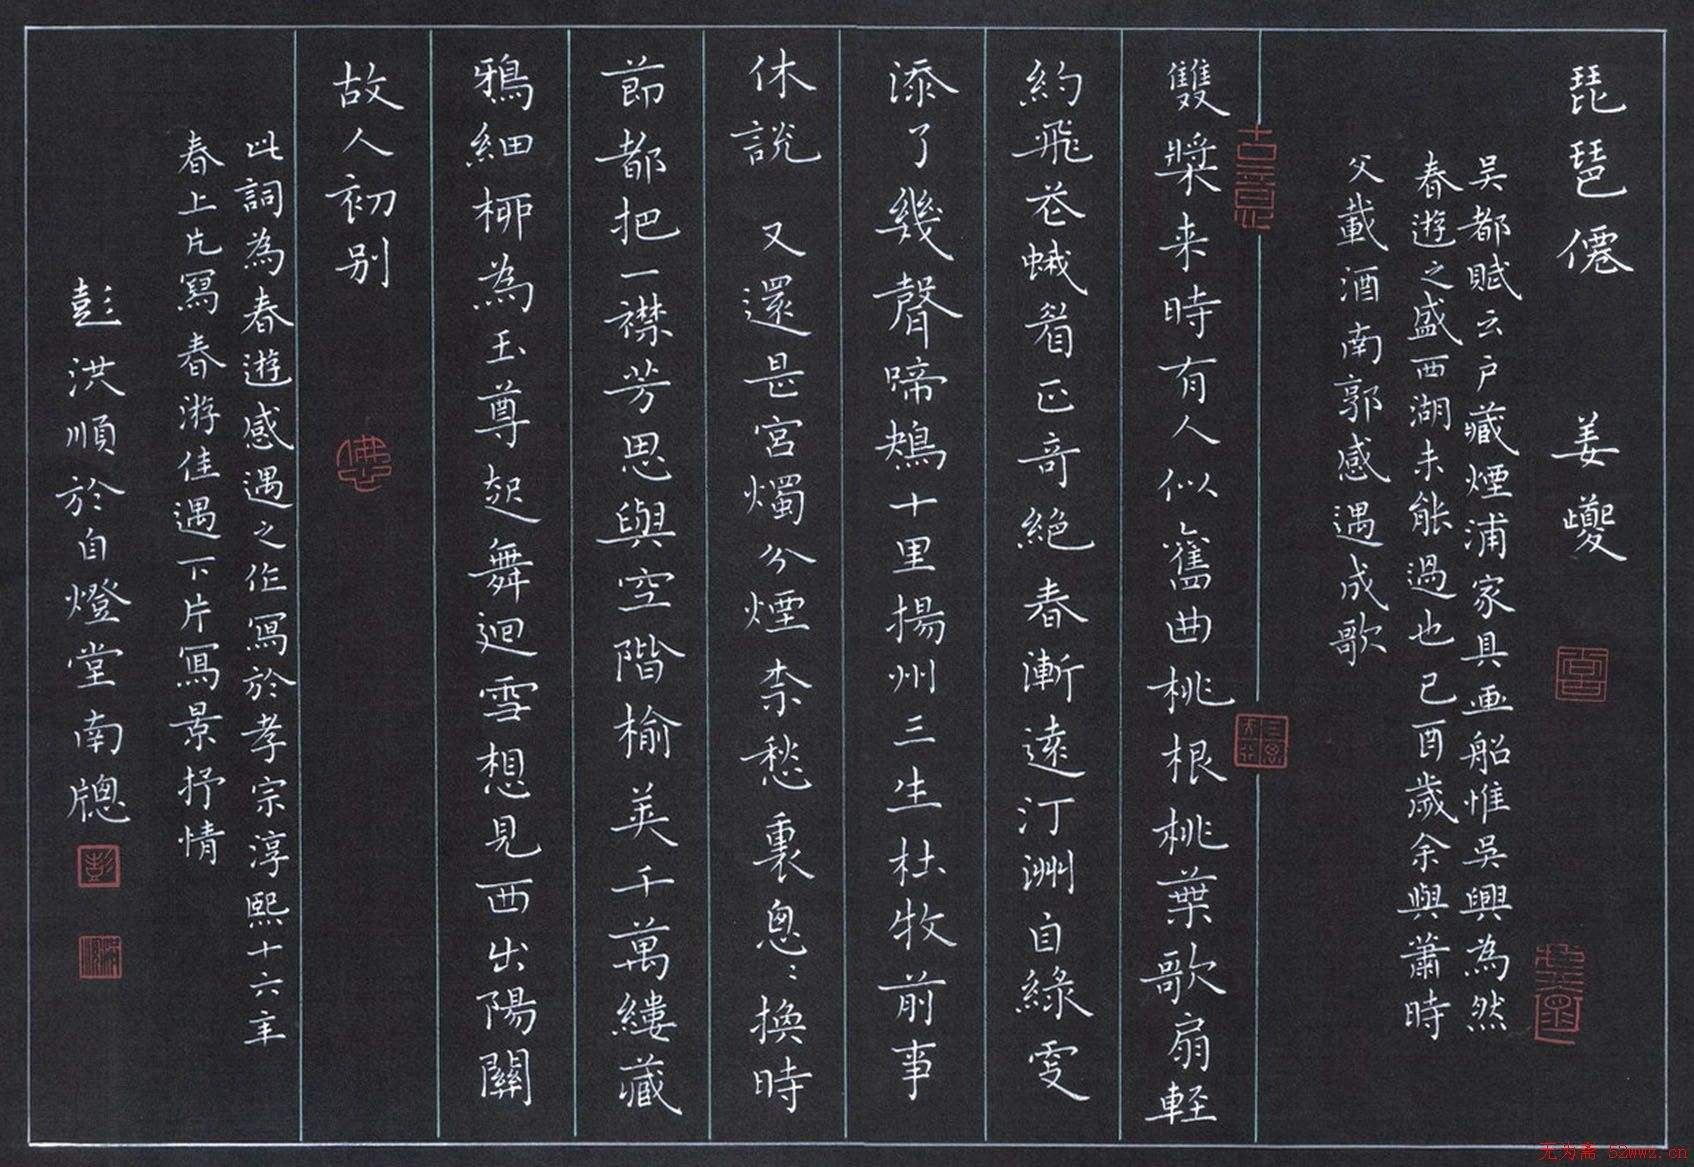 琵琶僊 姜夔
吳都賦云户藏煙浦家具画船惟吳興為然
春遊之盛西湖未能過也己酉歲余與蕭時
父載酒南郭感遇成歌
雙槳来時有人似舊曲桃根桃葉歌扇輕
約飛花蛾眉正奇絕春漸遠汀洲自綠更
添了幾聲啼鴂十里揚州三生杜牧前事
休說 又還是宮燭分煙柰愁裏怱〻換時
節都把一襟芳思與空階榆荚千萬縷藏
鴉細柳為玉尊起舞迴雪想見西出陽關
故人初别
此詞為春遊感遇之作寫於孝宗淳熙十六年
春上片寫春游佳遇下片寫景抒情
彭洪順於自燈堂南牕
无为斋 52wwz.cn